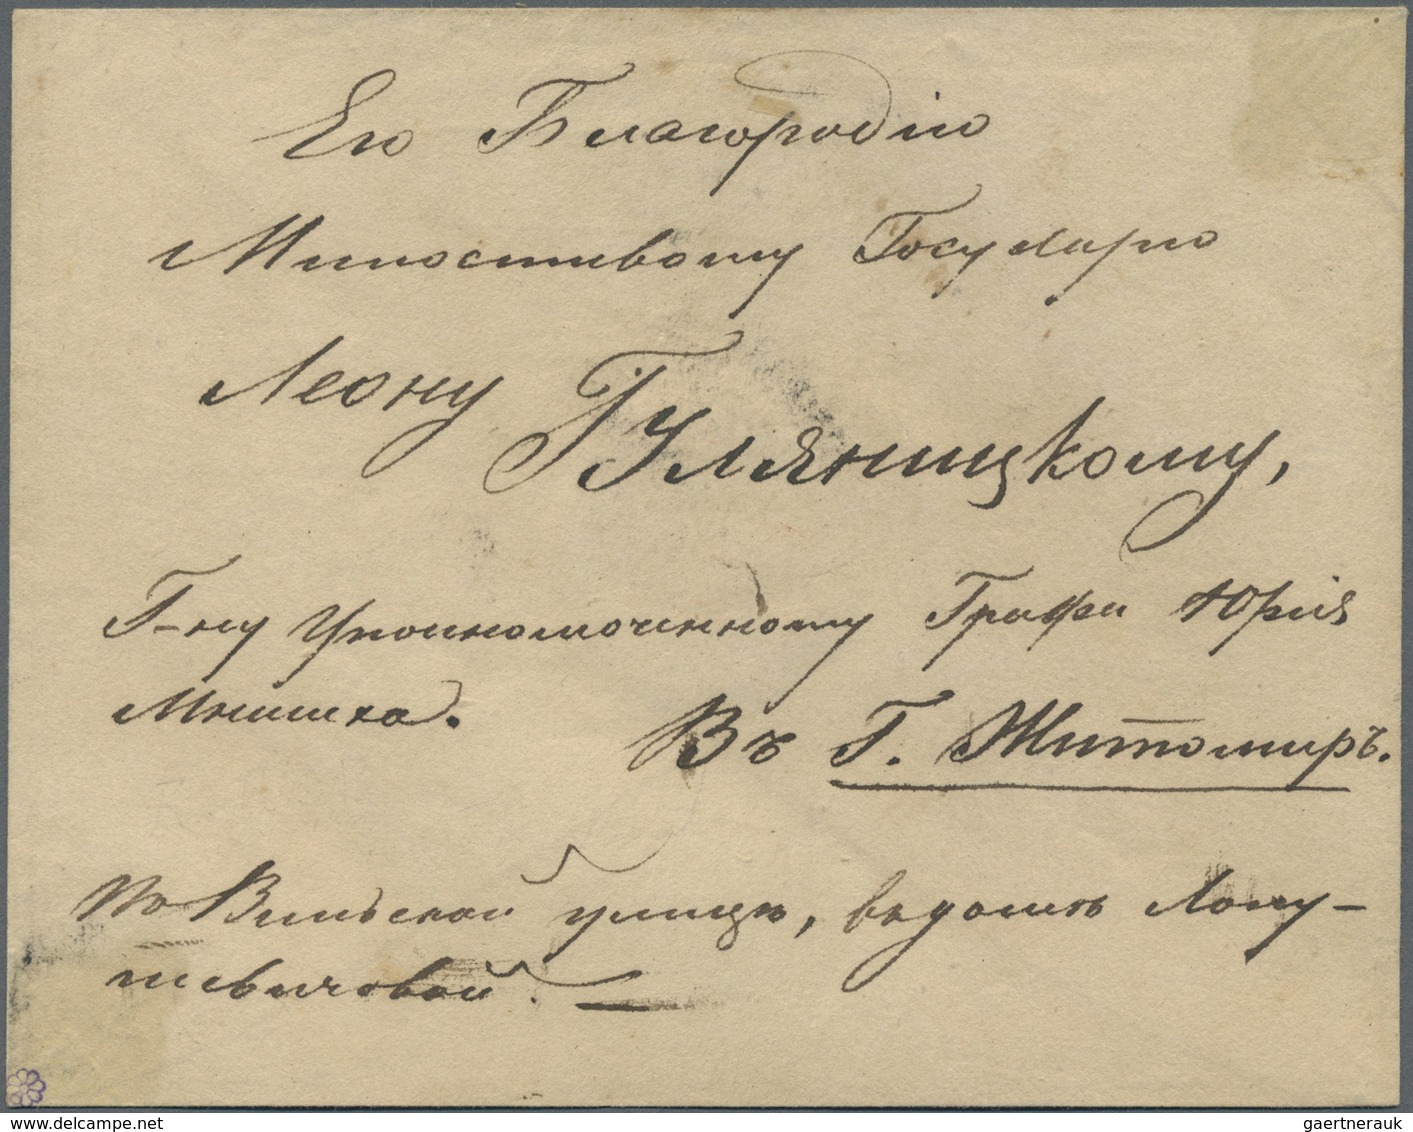 Его Благородію
Милостивому Государю
Леону Гуляницкому,
Г-ну Уполномоченному Графа Юрія
Мнишка.
Въ Г. Житомиръ.
по Вильской улицѣ, въ домѣ
gaertnerauk